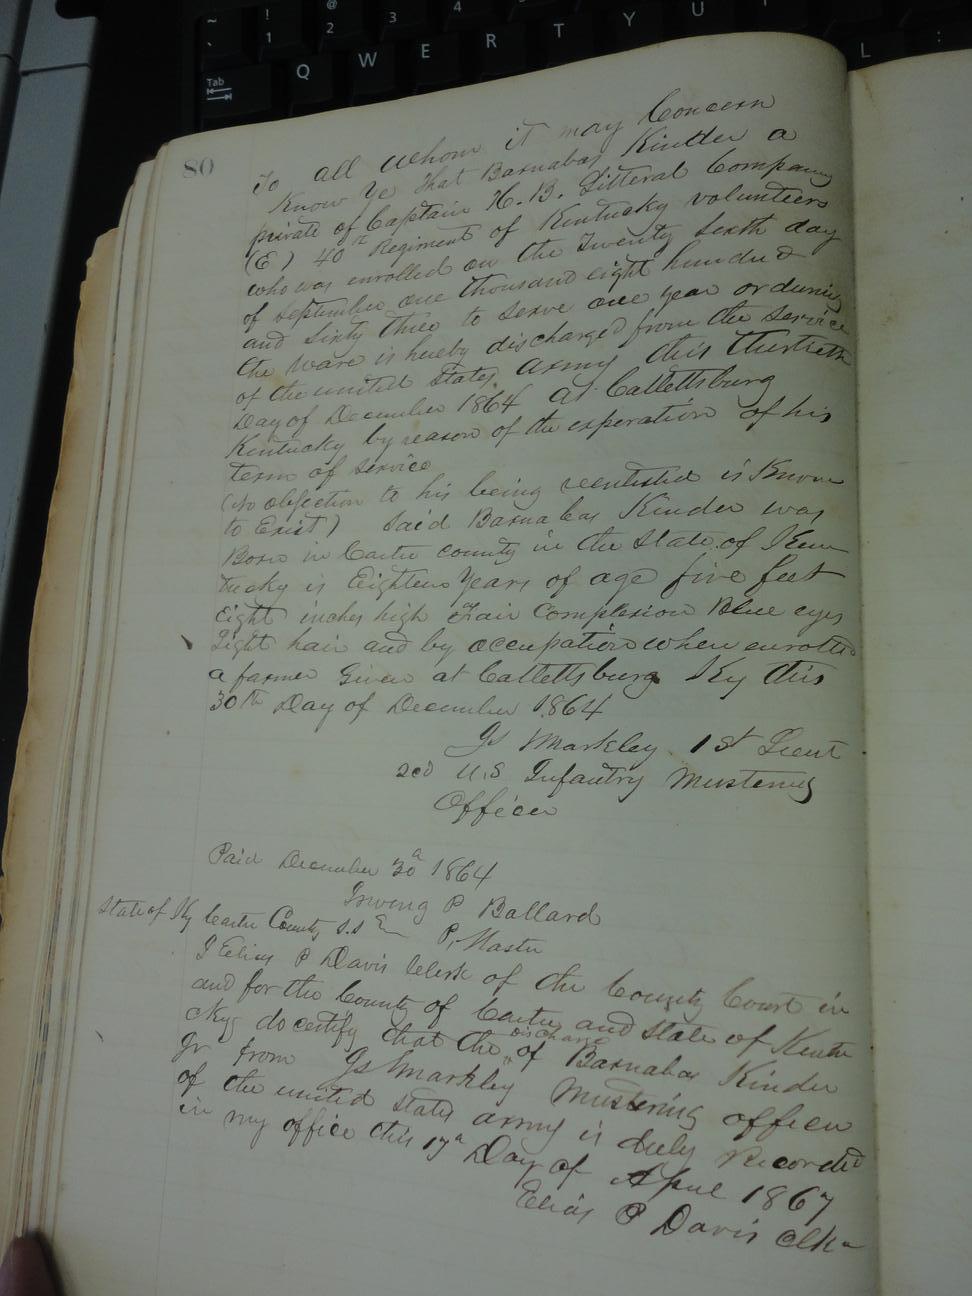 ~ ! @
` 1 2 3 4
Tab Q W E R T Y U I
L :
80
To all whom it may Concern
Know Ye That Barnabas Kinder a
private of Captain H. B. Litteral Company
(E) 40th Regiment of Kentucky volunteers
who was enrolled on the Twenty Sexth day
of September one thousand eight hundred
and Sixty three to serve one year or during
the ware is hereby discharged from the service
of the united States army this thirtieth
Day of December 1864 at Catlettsburg
Kentucky by reason of the experation of his
term of service
(No objection to his being reenlisted is Known
to Exist) Said Barnabas Kinder was
Born in Carter county in the State of Ken
tucky is Eighteen Years of age five feet
Eight inches high Fair Complexion Blue eyes
Light hair and by occupation when enrolled
a farmer Given at Catlettsburg Ky this
30th Day of December 1864
Js Markley 1st Lieut
2ed U.S Infantry Mustering
Officer
Paid December 30th 1864
Irwing P Ballard
P, Master
State of Ky Carter County S.S
I Elias P Davis Clerk of the County Court in
and for the County of Carter and State of Kentu
cky do certify that the discharge of Barnabas Kinder
Jr from Js Markley Mustering officer
of the united states army is duly Recorded
in my office this 17th Day of April 1867
Elias P Davis Clk